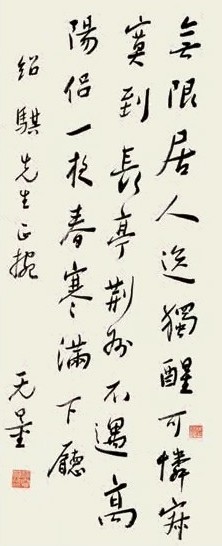 無限居人送獨醒可憐寂
寞到長亭荊州不遇高
陽侶一夜春寒滿下廳
紹騏先生正捥
无量